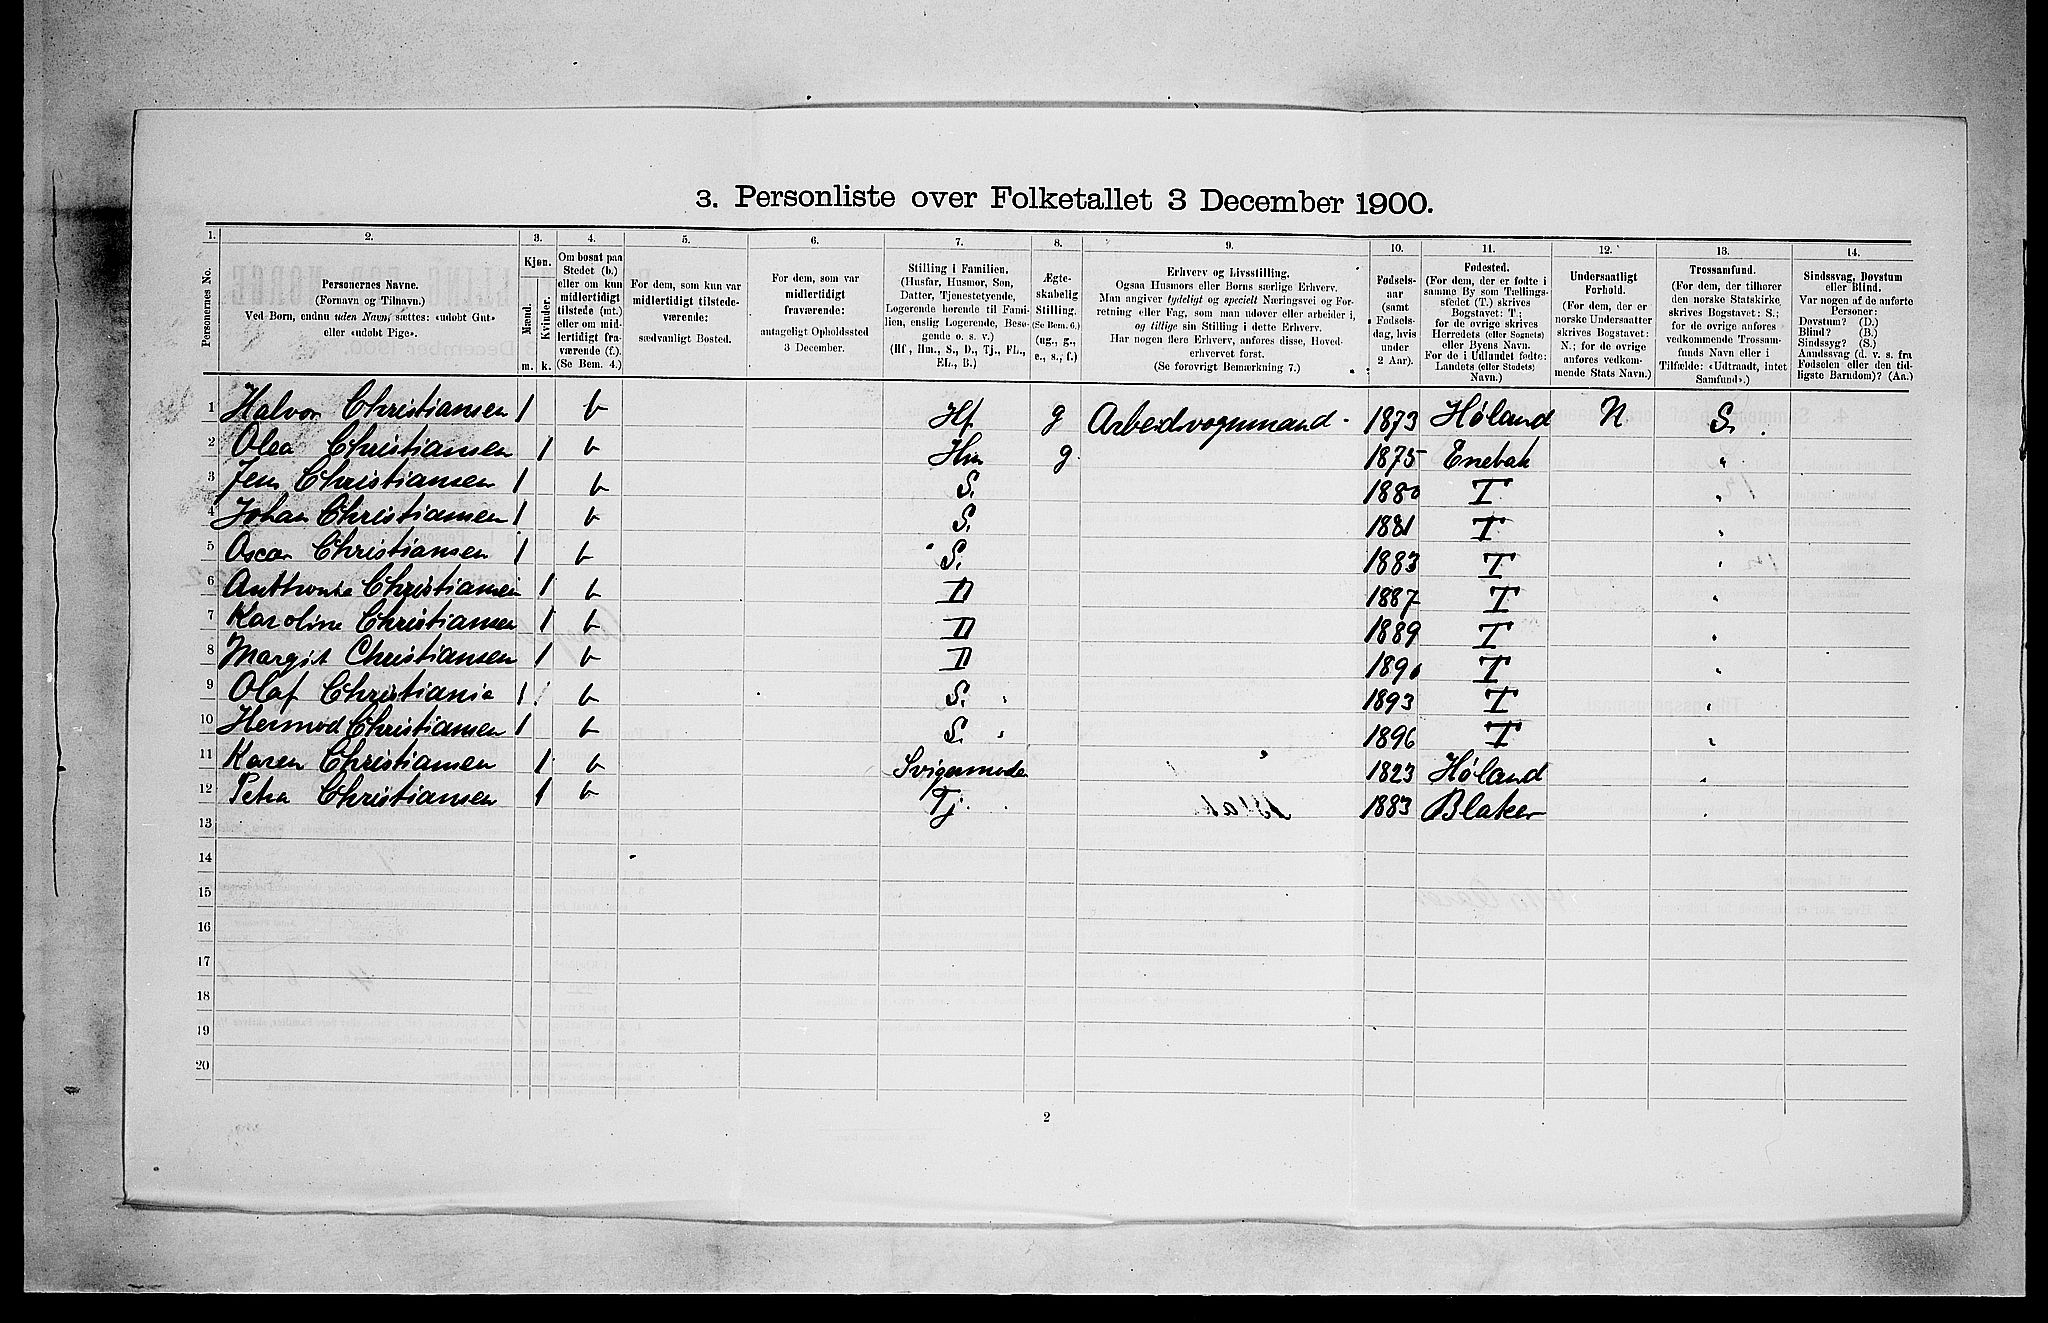 3. Personliste over Folketallet 3 December 1900.
1. 2. 3. 4. 5. 6. 7. 8. 9. 10. 11. 12. 13. 14.
Personernes No.
Personernes Navne.
(Fornavn og Tilnavn.)
Ved Børn, endnu uden Navn, sættes: «udøbt Gut»
eller «udøbt Pige».
Kjøn.
Mænd.
Kvinder.
m. k.
Om bosat paa
Stedet (b.)
eller om kun
midlertidigt
tilstede (mt.)
eller om mid-
lertidigt fra-
værende (f.).
(Se Bem. 4.)
For dem, som kun var
midlertidigt tilstede-
værende:
sædvanligt Bosted.
For dem, som var
midlertidigt
fraværende:
antageligt Opholdssted
3 December.
Stilling i Familien.
(Husfar, Husmor, Søn,
Datter, Tjenestetyende,
Logerende hørende til Fami-
lien, enslig Logerende, Besø-
gende o. s. v.)
(Hf., Hm., S., D., Tj., FL.,
EL., B.)
Ægte-
skabelig
Stilling.
(Se Bem. 6.)
(ug., g.,
e., s., f.)
Erhverv og Livsstilling.
Ogsaa Husmors eller Børns særlige Erhverv.
Man angiver tydeligt og specielt Næringsvei og For-
retning eller Fag, som man udøver eller arbeider i,
og tillige sin Stilling i dette Erhverv.
Har nogen flere Erhverv, anføres disse, Hoved-
erhvervet først.
(Se forøvrigt Bemærkning 7.)
Fødsels-
aar
(samt
Fødsels-
dag, hvis
under
2 Aar).
Fødested.
(For dem, der er fødte i
samme By som Tællings-
stedet (T.) skrives
Bogstavet: T;
for de øvrige skrives
Herredets (eller Sognets)
eller Byens Navn.
For de i Udlandet fødte:
Landets (eller Stedets)
Navn.)
Undersaatligt
Forhold.
(For dem, der er
norske Undersaatter
skrives Bogstavet:
N.; for de øvrige
anføres vedkom-
mende Stats Navn.)
Trossamfund.
(For dem, der tilhører
den norske Statskirke,
skrives Bogstavet: S.;
for de øvrige anføres
vedkommende Trossam-
funds Navn eller i
Tilfælde: «Udtraadt, intet
Samfund».)
Sindssvag, Døvstum
eller Blind.
Var nogen af de anførte
Personer:
Døvstum? (D.)
Blind? (B.)
Sindssyg? (S.)
Aandssvag (d. v. s. fra
Fødselen eller den tid-
ligste Barndom)? (Aa.)
1 Halvor Christiansen 1 b Hf. g Arbeidvognmand 1873 Høland N S.
2 Olea Christiansen 1 b Hm g 1875 Enebak "
3 Jens Christiansen 1 b S. 1880 T "
4 Johan Christiansen 1 b S. 1881 T "
5 Oscar Christiansen 1 b S. 1883 T "
6 Christiansen 1 b D 1887 T "
7 Karoline Christiansen 1 b D 1889 T "
8 Margit Christiansen 1 b D 1890 T "
9 Olaf 1 b S. 1893 T "
10 Hermod Christiansen 1 b S. 1896 T "
11 Karen Christiansen 1 b Svigermoder 1823 Høland "
12 Petra Christiansen 1 b Tj. 1883 Blaker "
13
14
15
16
17
18
19
20
2